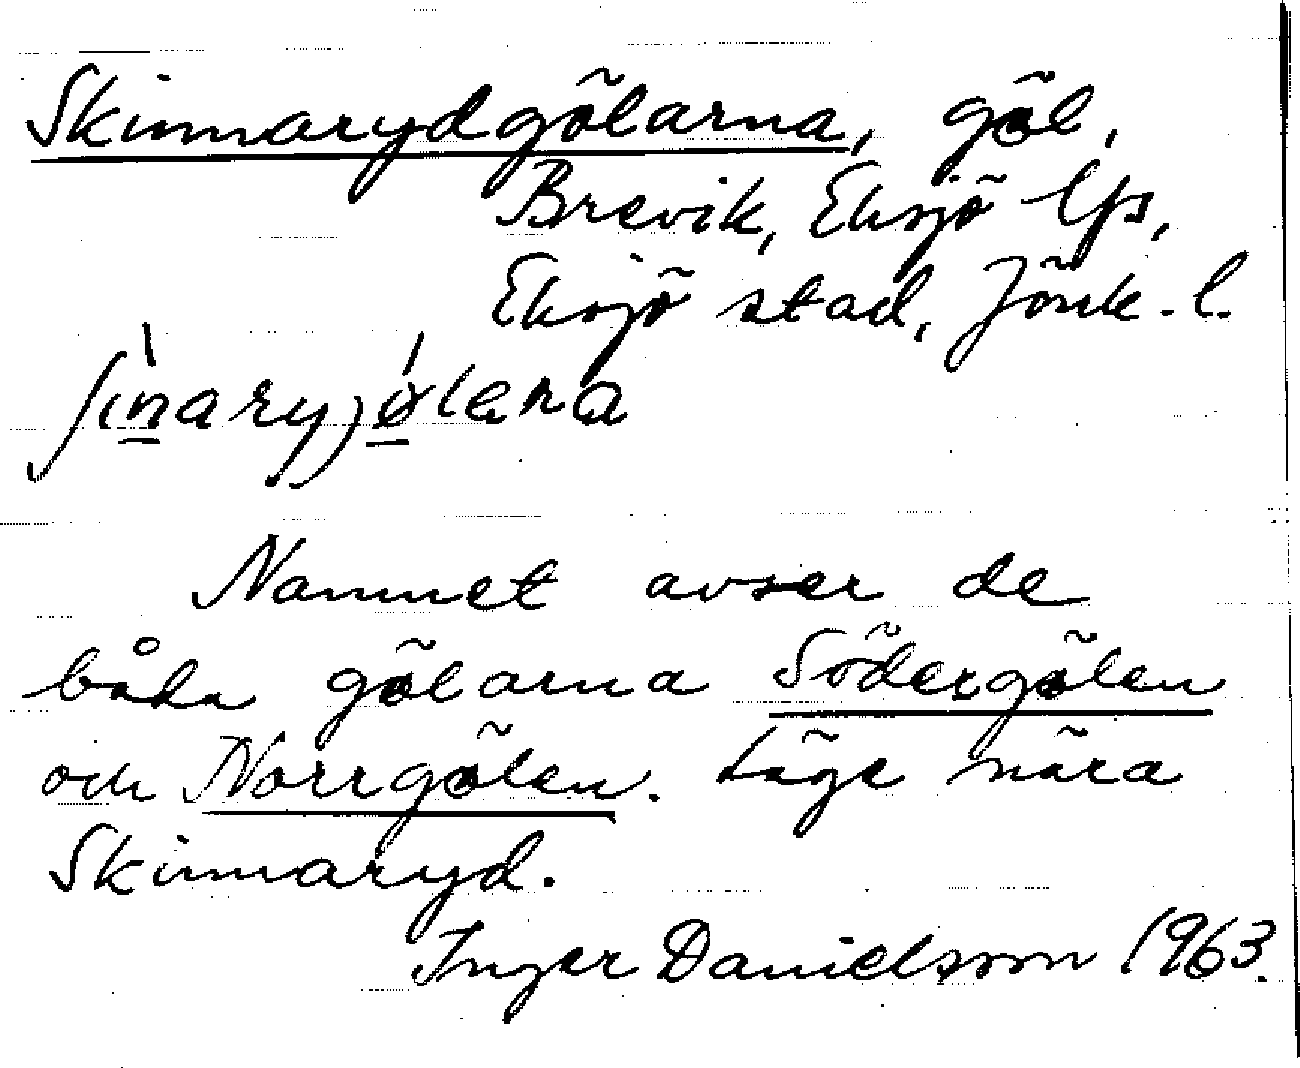 Skinnarydgölarna, göl,
Brevik, Eksjö lfs,
Eksjö stad, Jönk. l.
ʃìnaryjǿlana
Namnet avser de
båda gölarna Södergölen
och Norrgölen. Läge nära
Skinnaryd.
Inger Danielsson 1963.